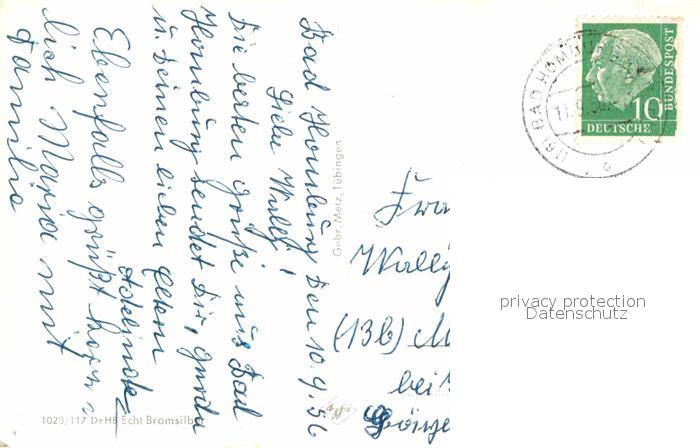 Bad Homburg den 10.9.56
Liebe Wally!
Die besten Grüße aus Bad
Homburg sendet Dir, Gerda
u. Deinen lieben Eltern
Adelinde
Ebenfalls grüßt herz-
lich Maria mit
Familie
Gebr. Metz, Tübingen
1020/117 DeHB Echt Bromsilber
(16) BAD HOMBURG
11.9.56
c
10
DEUTSCHE
BUNDESPOST
Wally
(13b) M
bei
privacy protection
Datenschutz